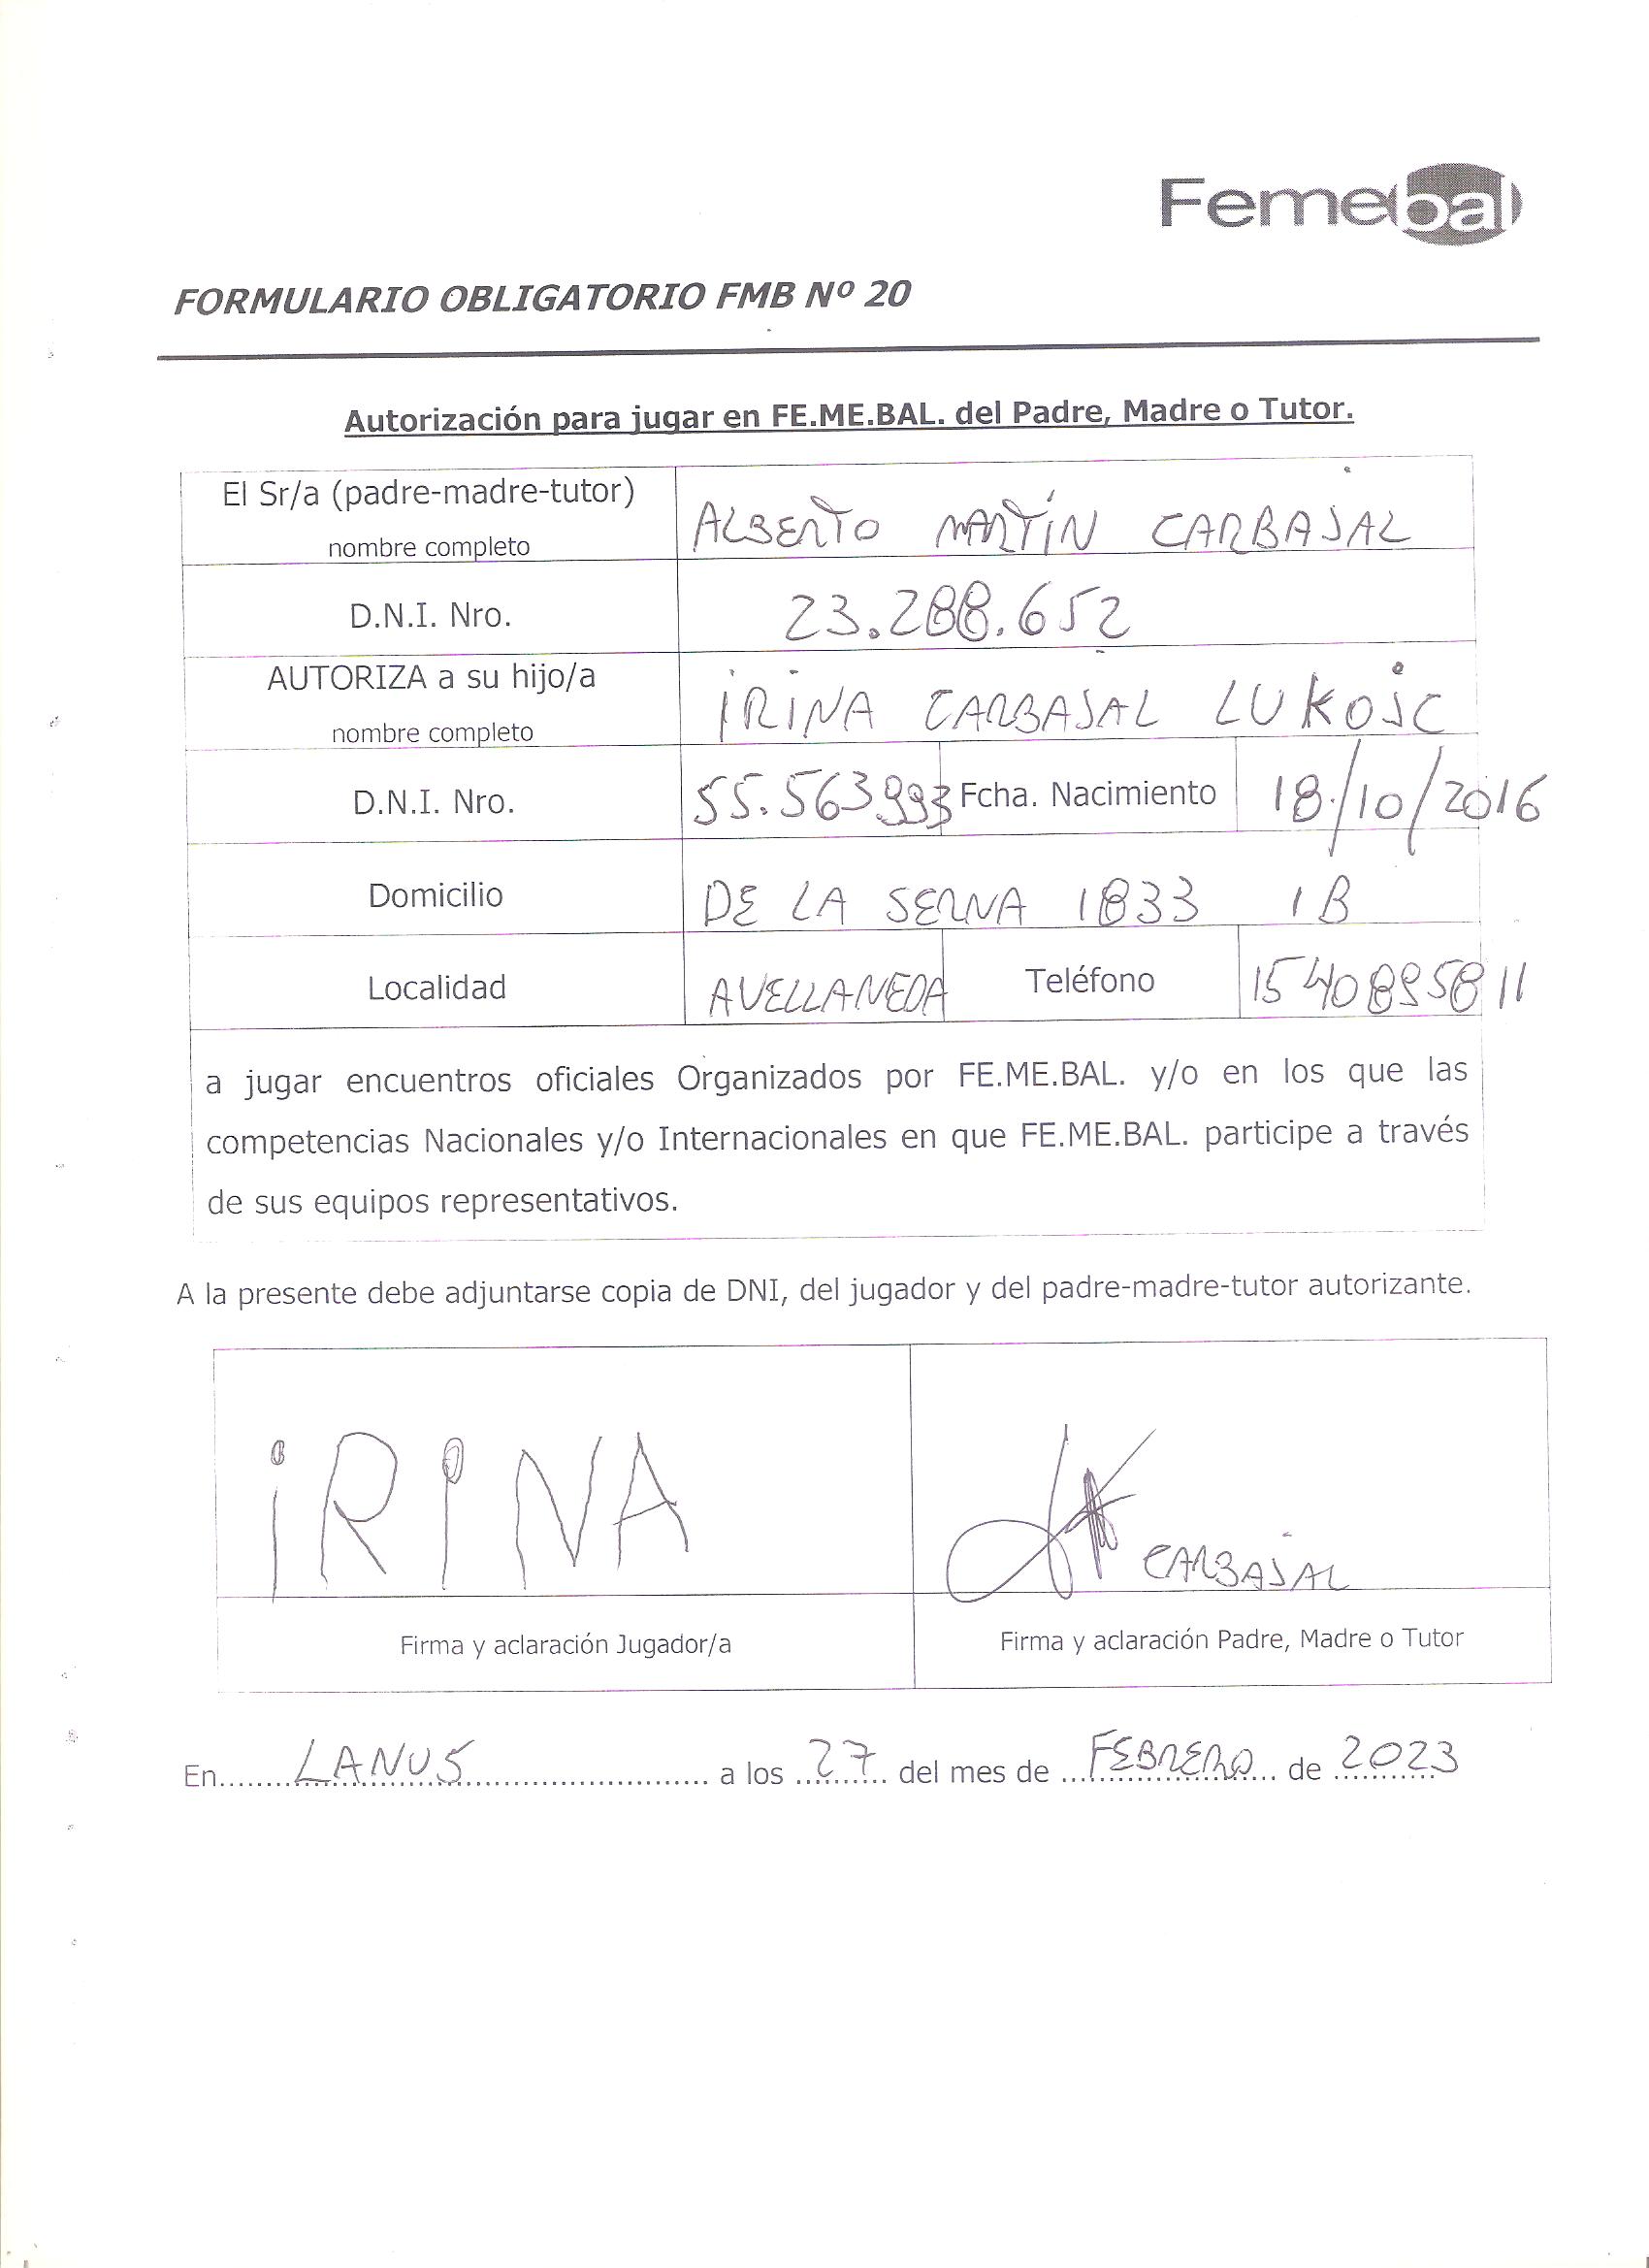 Femebal
FORMULARIO OBLIGATORIO FMB Nº 20
Autorización para jugar en FE.ME.BAL. del Padre, Madre o Tutor.
El Sr/a (padre-madre-tutor) nombre completo ALBERTO MARTÍN CARBAJAL
D.N.I. Nro. 23.288.652
AUTORIZA a su hijo/a nombre completo IRINA CARBAJAL LUKOJC
D.N.I. Nro. 55.563993 Fcha. Nacimiento 18/10/2016
Domicilio DE LA SERNA 1833 1B
Localidad AVELLANEDA Teléfono 1540895811
a jugar encuentros oficiales Organizados por FE.ME.BAL. y/o en los que las
competencias Nacionales y/o Internacionales en que FE.ME.BAL. participe a través
de sus equipos representativos.
A la presente debe adjuntarse copia de DNI, del jugador y del padre-madre-tutor autorizante.
iRiNA CARBAJAL
Firma y aclaración Jugador/a Firma y aclaración Padre, Madre o Tutor
En LANUS a los 27 del mes de FEBRERO de 2023